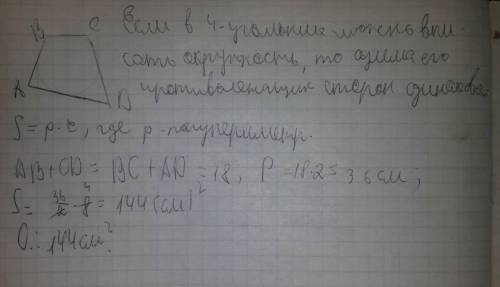 B C
Если в 4-угольник можно впи-
сать окружность, то сумма его
A D
противолежащих сторон одинакова.
S = p·r, где p - полупериметр.
AB + CD = BC + AD = 18, P = 18·2 = 36 см;
S = 36/2 · 8 = 144 (см)²
О.: 144 см².